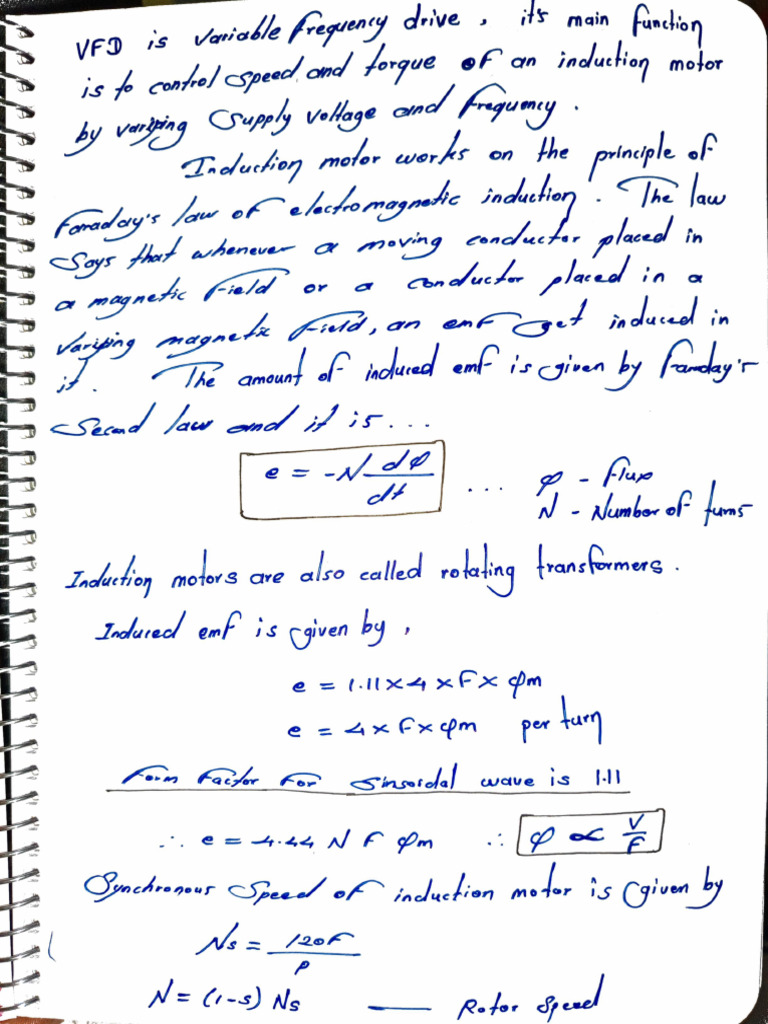 VFD is variable frequency drive, it's main function
is to control speed and torque of an induction motor
by variying supply voltage and frequency.
Induction motor works on the principle of
Faraday's law of electromagnetic induction. The law
says that whenever a moving conductor placed in
a magnetic field or a conductor placed in a
variying magnetic field, an emf get induced in
it. The amount of induced emf is given by Faraday's
second law and it is...
e = -N dφ/dt ... φ - flux
N - Number of turns
Induction motors are also called rotating transformers.
Induced emf is given by,
e = 1.11 x 4 x f x φm
e = 4 x f x φm per turn
Form factor for sinsoidal wave is 1.11
∴ e = 4.44 N f φm ∴ φ ∝ V/f
Synchronous speed of induction motor is given by
Ns = 120f/P
N = (1-s) Ns — Rotor speed